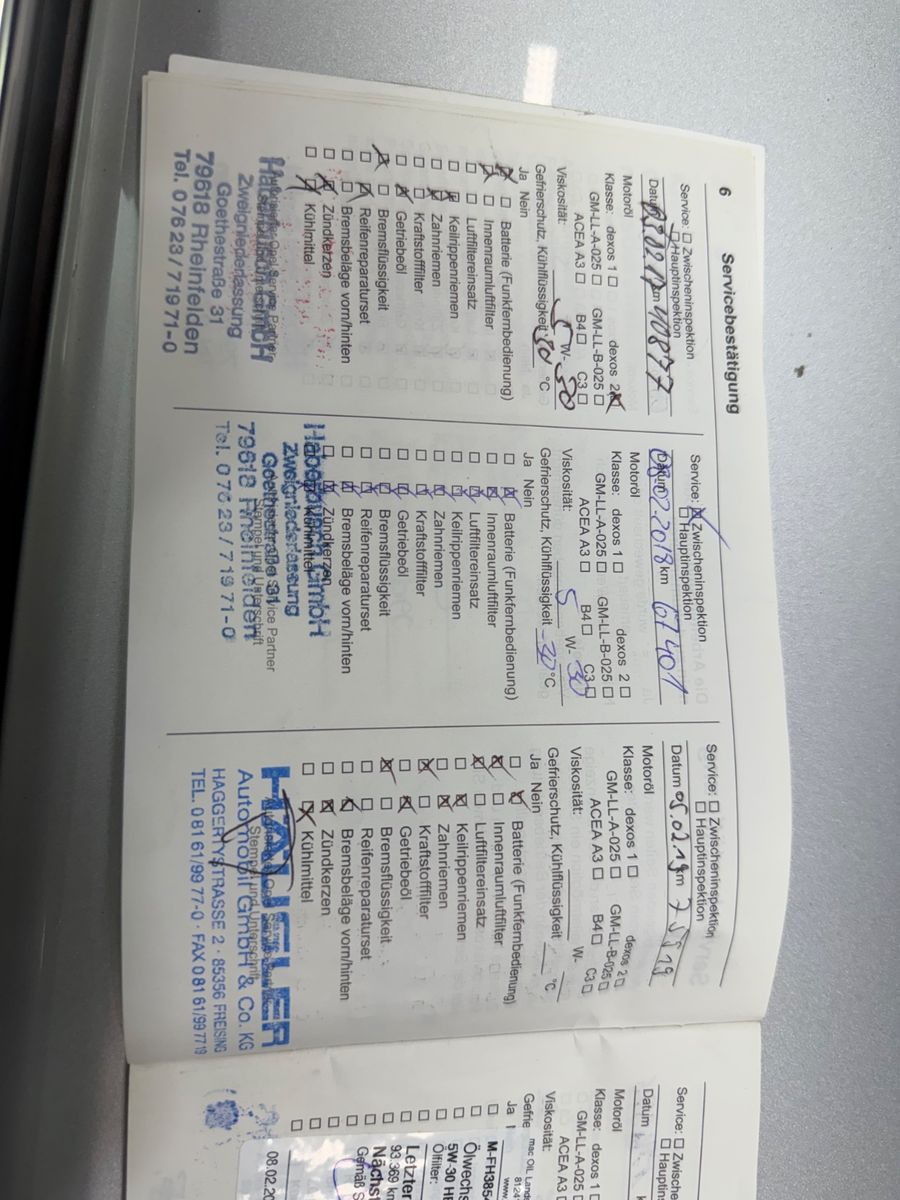 6 Servicebestätigung
Service: Zwischeninspektion
Hauptinspektion
Datum km 40877
Motoröl
Klasse: dexos 1 dexos 2
GM-LL-A-025 GM-LL-B-025
ACEA A3 B4 C3
Viskosität: 5 W- 30
Gefrierschutz, Kühlflüssigkeit °C
Ja Nein
Batterie (Funkfernbedienung)
Innenraumluftfilter
Luftfiltereinsatz
Keilrippenriemen
Zahnriemen
Kraftstofffilter
Getriebeöl
Bremsflüssigkeit
Reifenreparaturset
Bremsbeläge vorn/hinten
Zündkerzen
Kühlmittel
Zweigniederlassung
Goethestraße 31
79618 Rheinfelden
Tel. 07623/71971-0
Service: Zwischeninspektion
Hauptinspektion
Datum 08.02.2018 km 67401
Motoröl
Klasse: dexos 1 dexos 2
GM-LL-A-025 GM-LL-B-025
ACEA A3 B4 C3
Viskosität: 5 W- 30
Gefrierschutz, Kühlflüssigkeit -30 °C
Ja Nein
Batterie (Funkfernbedienung)
Innenraumluftfilter
Luftfiltereinsatz
Keilrippenriemen
Zahnriemen
Kraftstofffilter
Getriebeöl
Bremsflüssigkeit
Reifenreparaturset
Bremsbeläge vorn/hinten
Zündkerzen
Kühlmittel
GmbH
Zweigniederlassung
Goethestraße 31
Stempel und Unterschrift
79618 Rheinfelden
Tel. 07623/71971-0
Service: Zwischeninspektion
Hauptinspektion
Datum 05.02.19 km 75519
Motoröl
Klasse: dexos 1 dexos 2
GM-LL-A-025 GM-LL-B-025
ACEA A3 B4 C3
Viskosität: W-
Gefrierschutz, Kühlflüssigkeit °C
Ja Nein
Batterie (Funkfernbedienung)
Innenraumluftfilter
Luftfiltereinsatz
Keilrippenriemen
Zahnriemen
Kraftstofffilter
Getriebeöl
Bremsflüssigkeit
Reifenreparaturset
Bremsbeläge vorn/hinten
Zündkerzen
Kühlmittel
Automobil GmbH & Co. KG
Stempel und Unterschrift
HAGGERTYSTRASSE 2 · 85356 FREISING
TEL. 08161/9977-0 · FAX 08161/997719
Service: Zwische
Hauptins
Datum k
Motoröl
Klasse: dexos 1
GM-LL-A-025
ACEA A3
Viskosität:
Gefrie
Ja
mac OIL Lands
M-FH385
Ölwechs
5W-30
Ölfilter:
Letzter
93 369 km
Nächst
Gemäß S
08.02.20